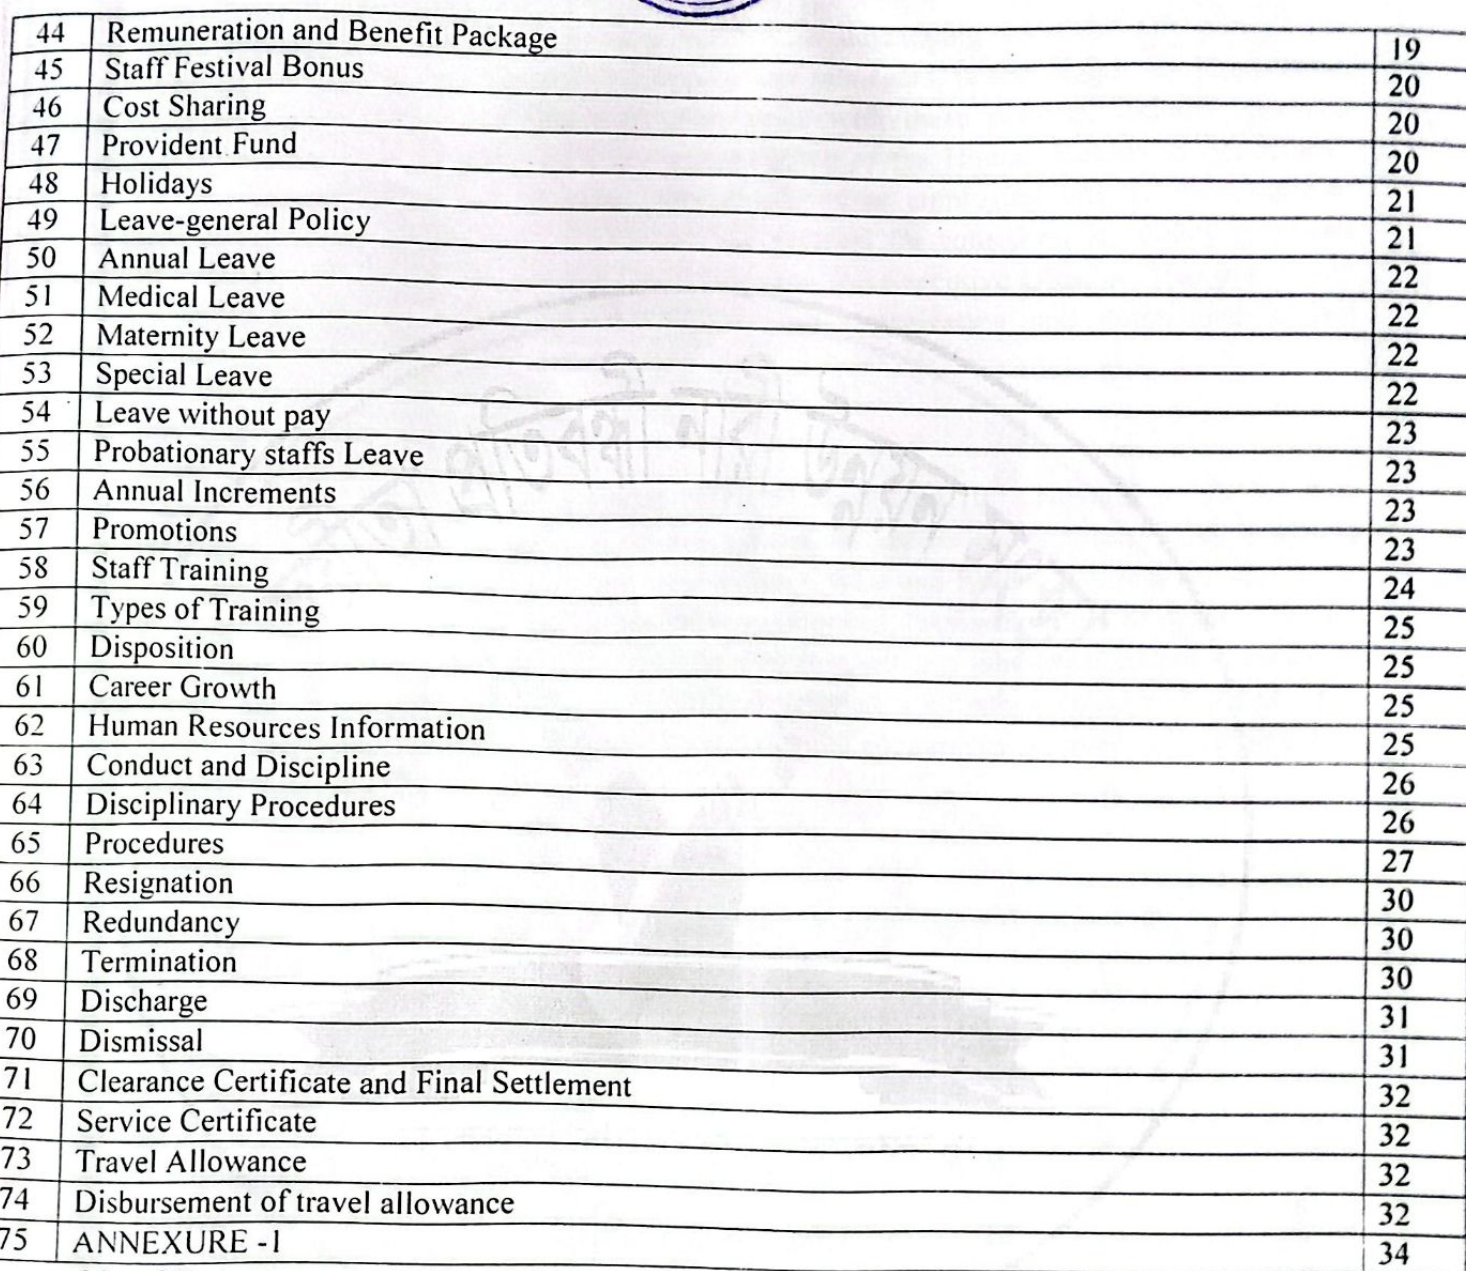 44 Remuneration and Benefit Package 19
45 Staff Festival Bonus 20
46 Cost Sharing 20
47 Provident Fund 20
48 Holidays 21
49 Leave-general Policy 21
50 Annual Leave 22
51 Medical Leave 22
52 Maternity Leave 22
53 Special Leave 22
54 Leave without pay 23
55 Probationary staffs Leave 23
56 Annual Increments 23
57 Promotions 23
58 Staff Training 24
59 Types of Training 25
60 Disposition 25
61 Career Growth 25
62 Human Resources Information 25
63 Conduct and Discipline 26
64 Disciplinary Procedures 26
65 Procedures 27
66 Resignation 30
67 Redundancy 30
68 Termination 30
69 Discharge 31
70 Dismissal 31
71 Clearance Certificate and Final Settlement 32
72 Service Certificate 32
73 Travel Allowance 32
74 Disbursement of travel allowance 32
75 ANNEXURE -I 34